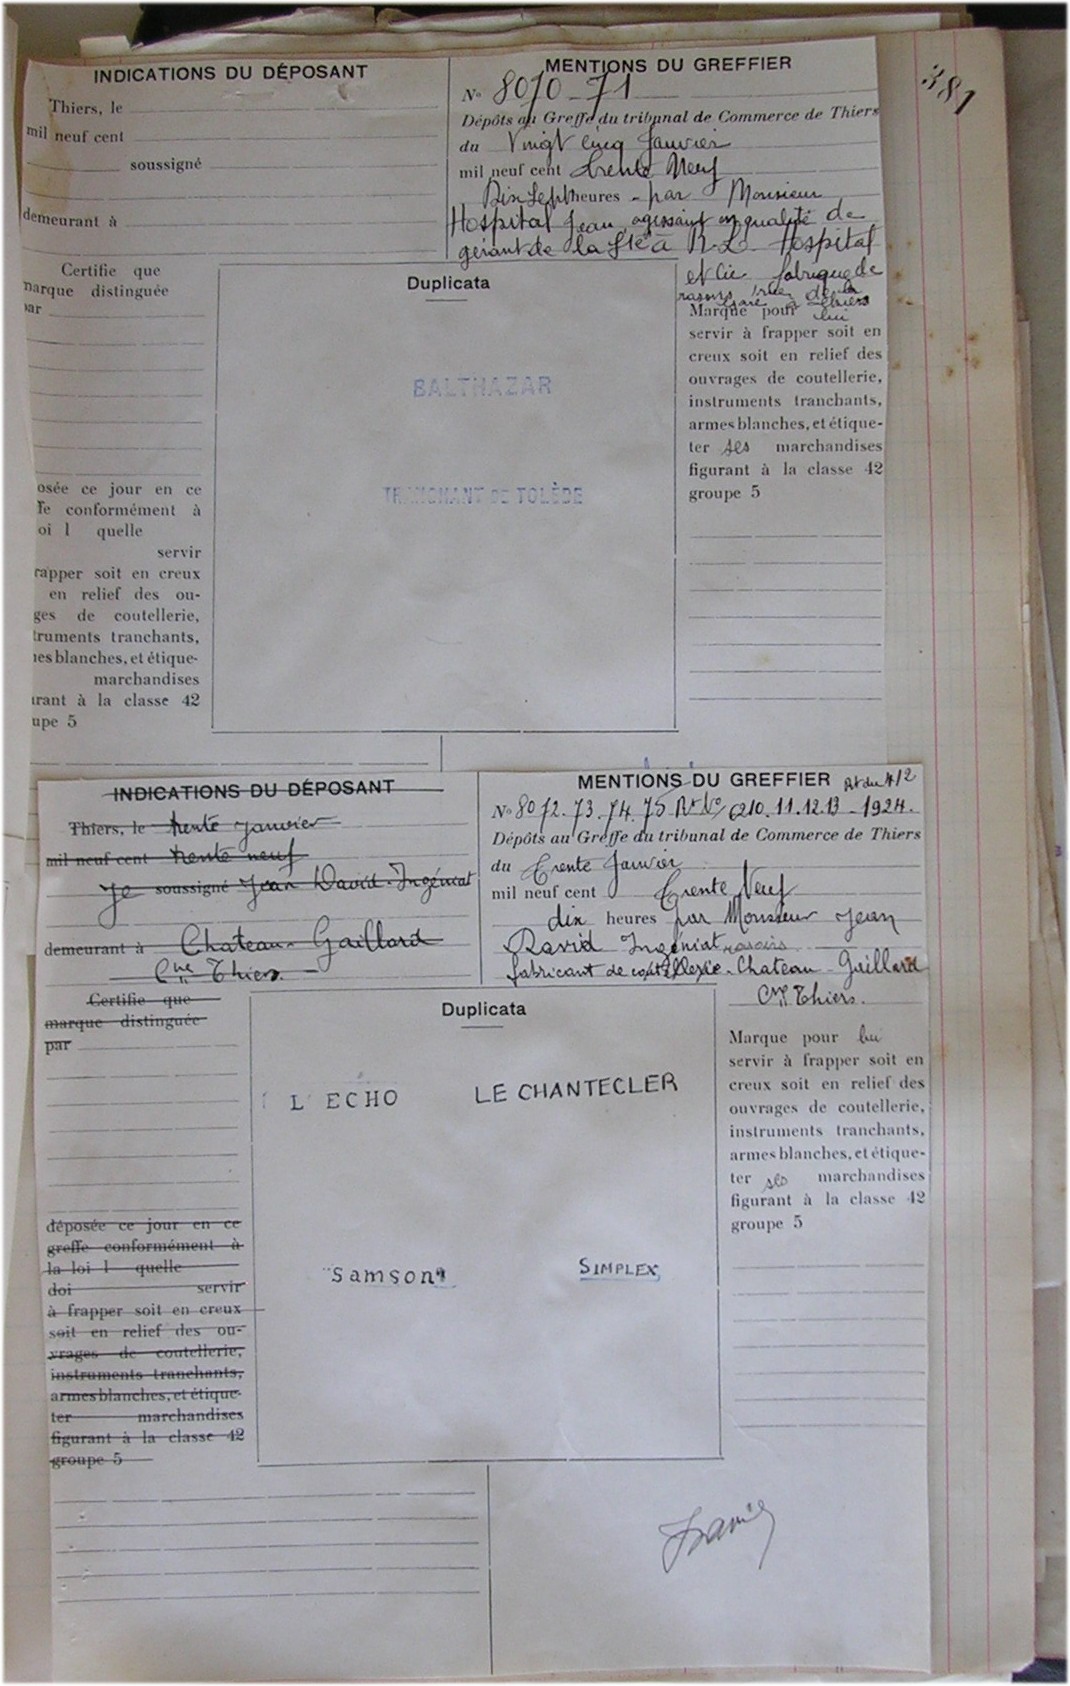 381
INDICATIONS DU DÉPOSANT
Thiers, le
mil neuf cent
soussigné
demeurant à
Certifie que
marque distinguée
par
osée ce jour en ce
fe conformément à
oi l quelle
servir
rapper soit en creux
en relief des ou-
ges de coutellerie,
truments tranchants,
nes blanches, et étique-
marchandises
urant à la classe 42
upe 5
MENTIONS DU GREFFIER
No 8070-71
Dépôts au Greffe du tribunal de Commerce de Thiers
du Vingt cinq Janvier
mil neuf cent trente Neuf
Dix Sept heures - par Monsieur
Hospital Jean, agissant en qualité de
gérant de la Sté à R.L. Hospital
et Cie fabrique de
rasoirs rue de la
Gare à Thiers
Marque pour lui
servir à frapper soit en
creux soit en relief des
ouvrages de coutellerie,
instruments tranchants,
armes blanches, et étique-
ter ses marchandises
figurant à la classe 42
groupe 5
Duplicata
BALTHAZAR
TRANCHANT DE TOLÈDE
INDICATIONS DU DÉPOSANT
Thiers, le trente janvier
mil neuf cent trente neuf
Je soussigné Jean David-Ingéniat
demeurant à Chateau-Gaillard
Cne Thiers
Certifie que
marque distinguée
par
déposée ce jour en ce
greffe conformément à
la loi l quelle
doi servir
à frapper soit en creux
soit en relief des ou-
vrages de coutellerie,
instruments tranchants,
armes blanches, et étique-
ter marchandises
figurant à la classe 42
groupe 5
MENTIONS DU GREFFIER
No 8072.73.74.75 6210.11.12.13-1924.
Dépôts au Greffe du tribunal de Commerce de Thiers
du Trente Janvier
mil neuf cent Trente Neuf
dix heures par Monsieur Jean
David Ingéniat rasoirs
fabricant de coutellerie-Chateau-Gaillard
Cne Thiers.
Marque pour lui
servir à frapper soit en
creux soit en relief des
ouvrages de coutellerie,
instruments tranchants,
armes blanches, et étique-
ter ses marchandises
figurant à la classe 42
groupe 5
Duplicata
L'ECHO LE CHANTECLER
"Samson" SIMPLEX